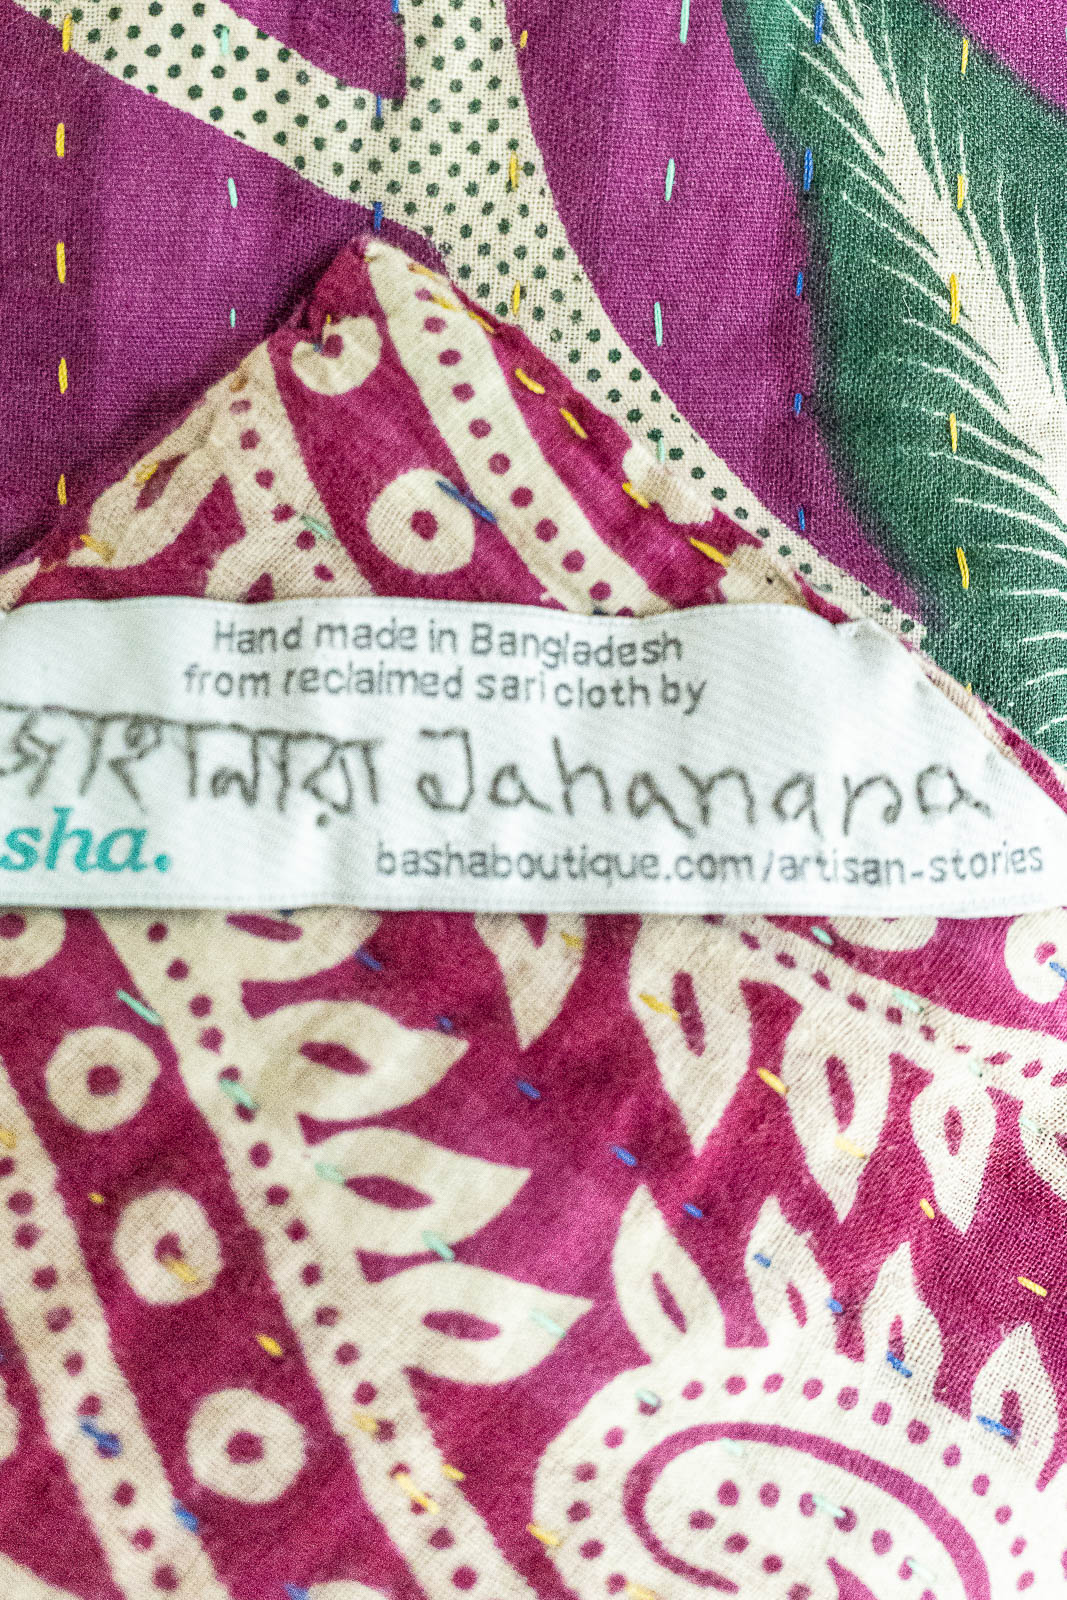 Hand made in Bangladesh
from reclaimed sari cloth by
জাহানারা Jahanara
sha.
bashaboutique.com/artisan-stories